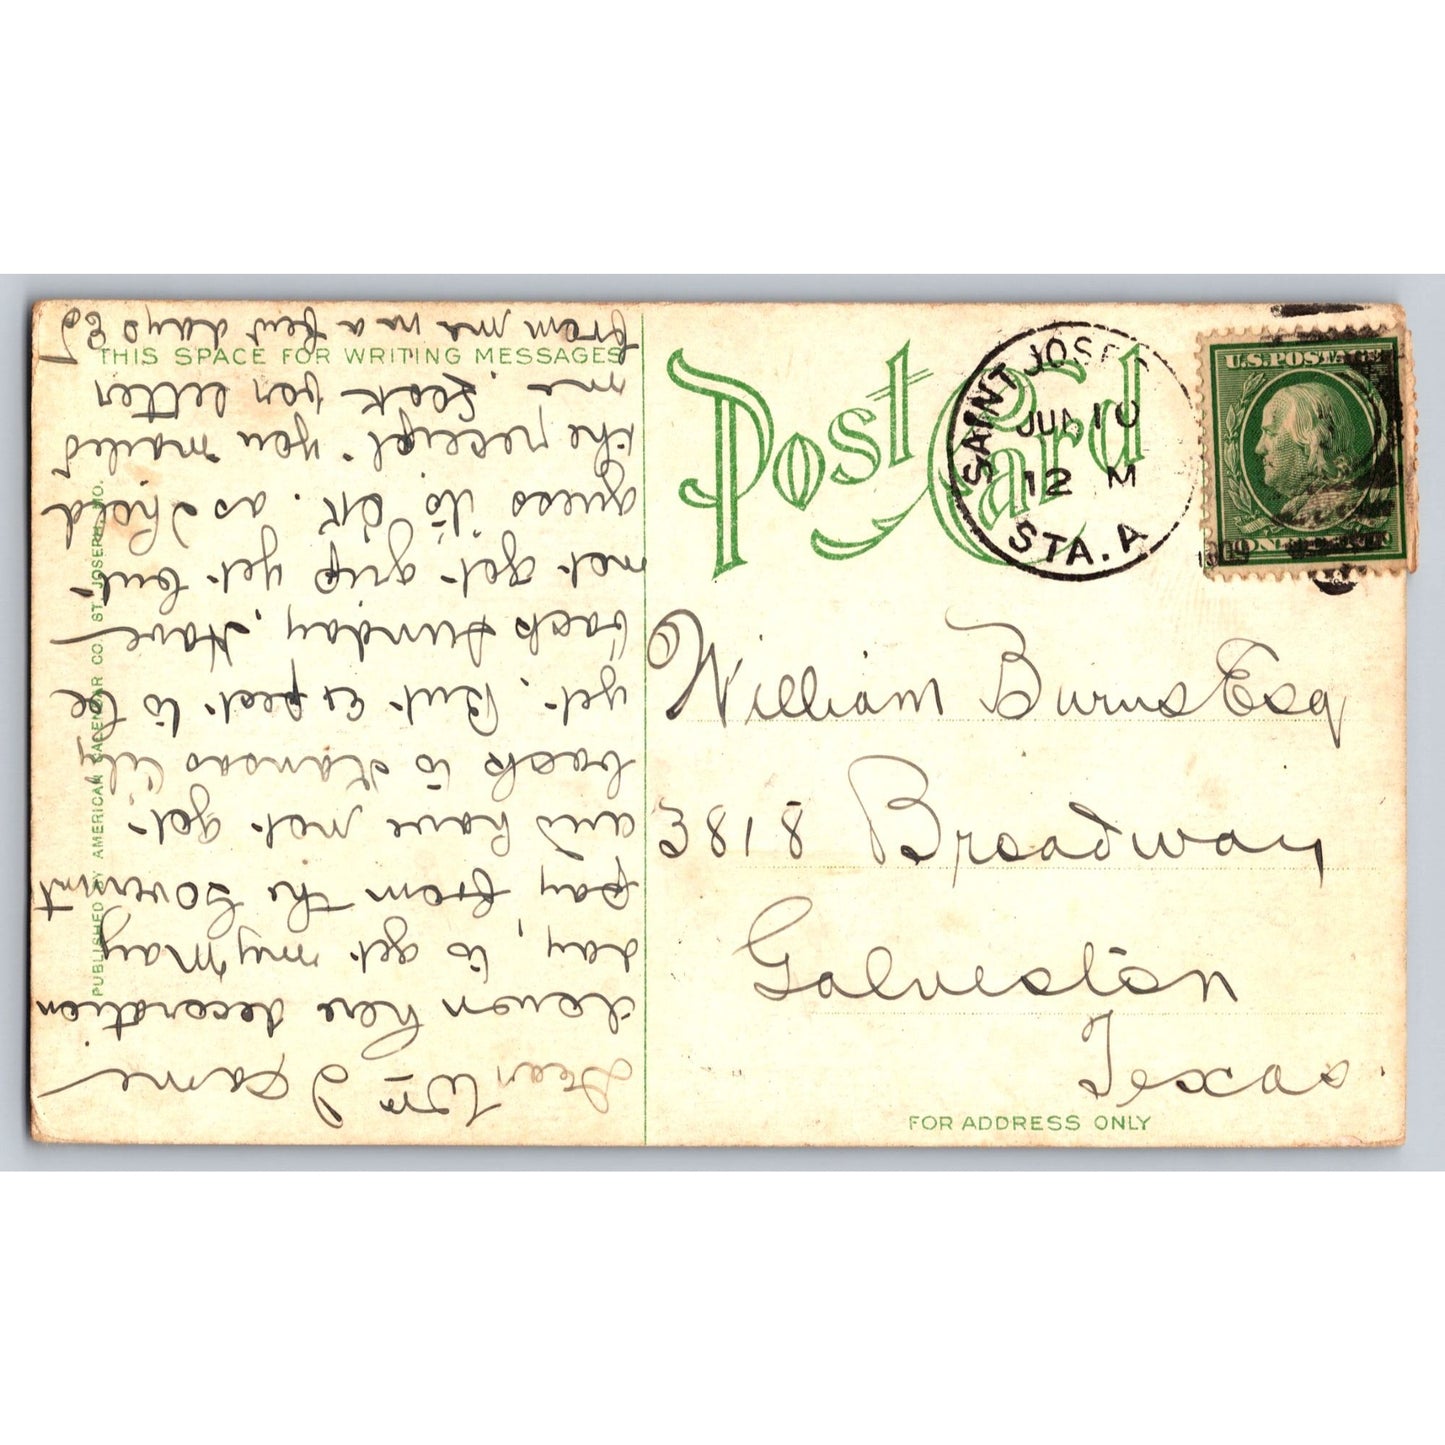 THIS SPACE FOR WRITING MESSAGES
PUBLISHED BY AMERICAN CALENDAR CO., ST. JOSEPH, MO.
Post Card
SAINT JOSEPH
JUN 10
12 M
STA. A
U.S. POSTAGE
ONE
William Burns Esq
3818 Broadway
Galveston
Texas.
FOR ADDRESS ONLY
Dear Wm I Came
down here decoration
day, to get my May
pay from the Goverint
and have not got
back to Kansas City
yet. But Expect to be
back Sunday, Have
not got grip yet but
guess its OK. as I hold
the receipt you mailed
me. Look for letter
from me in a few days